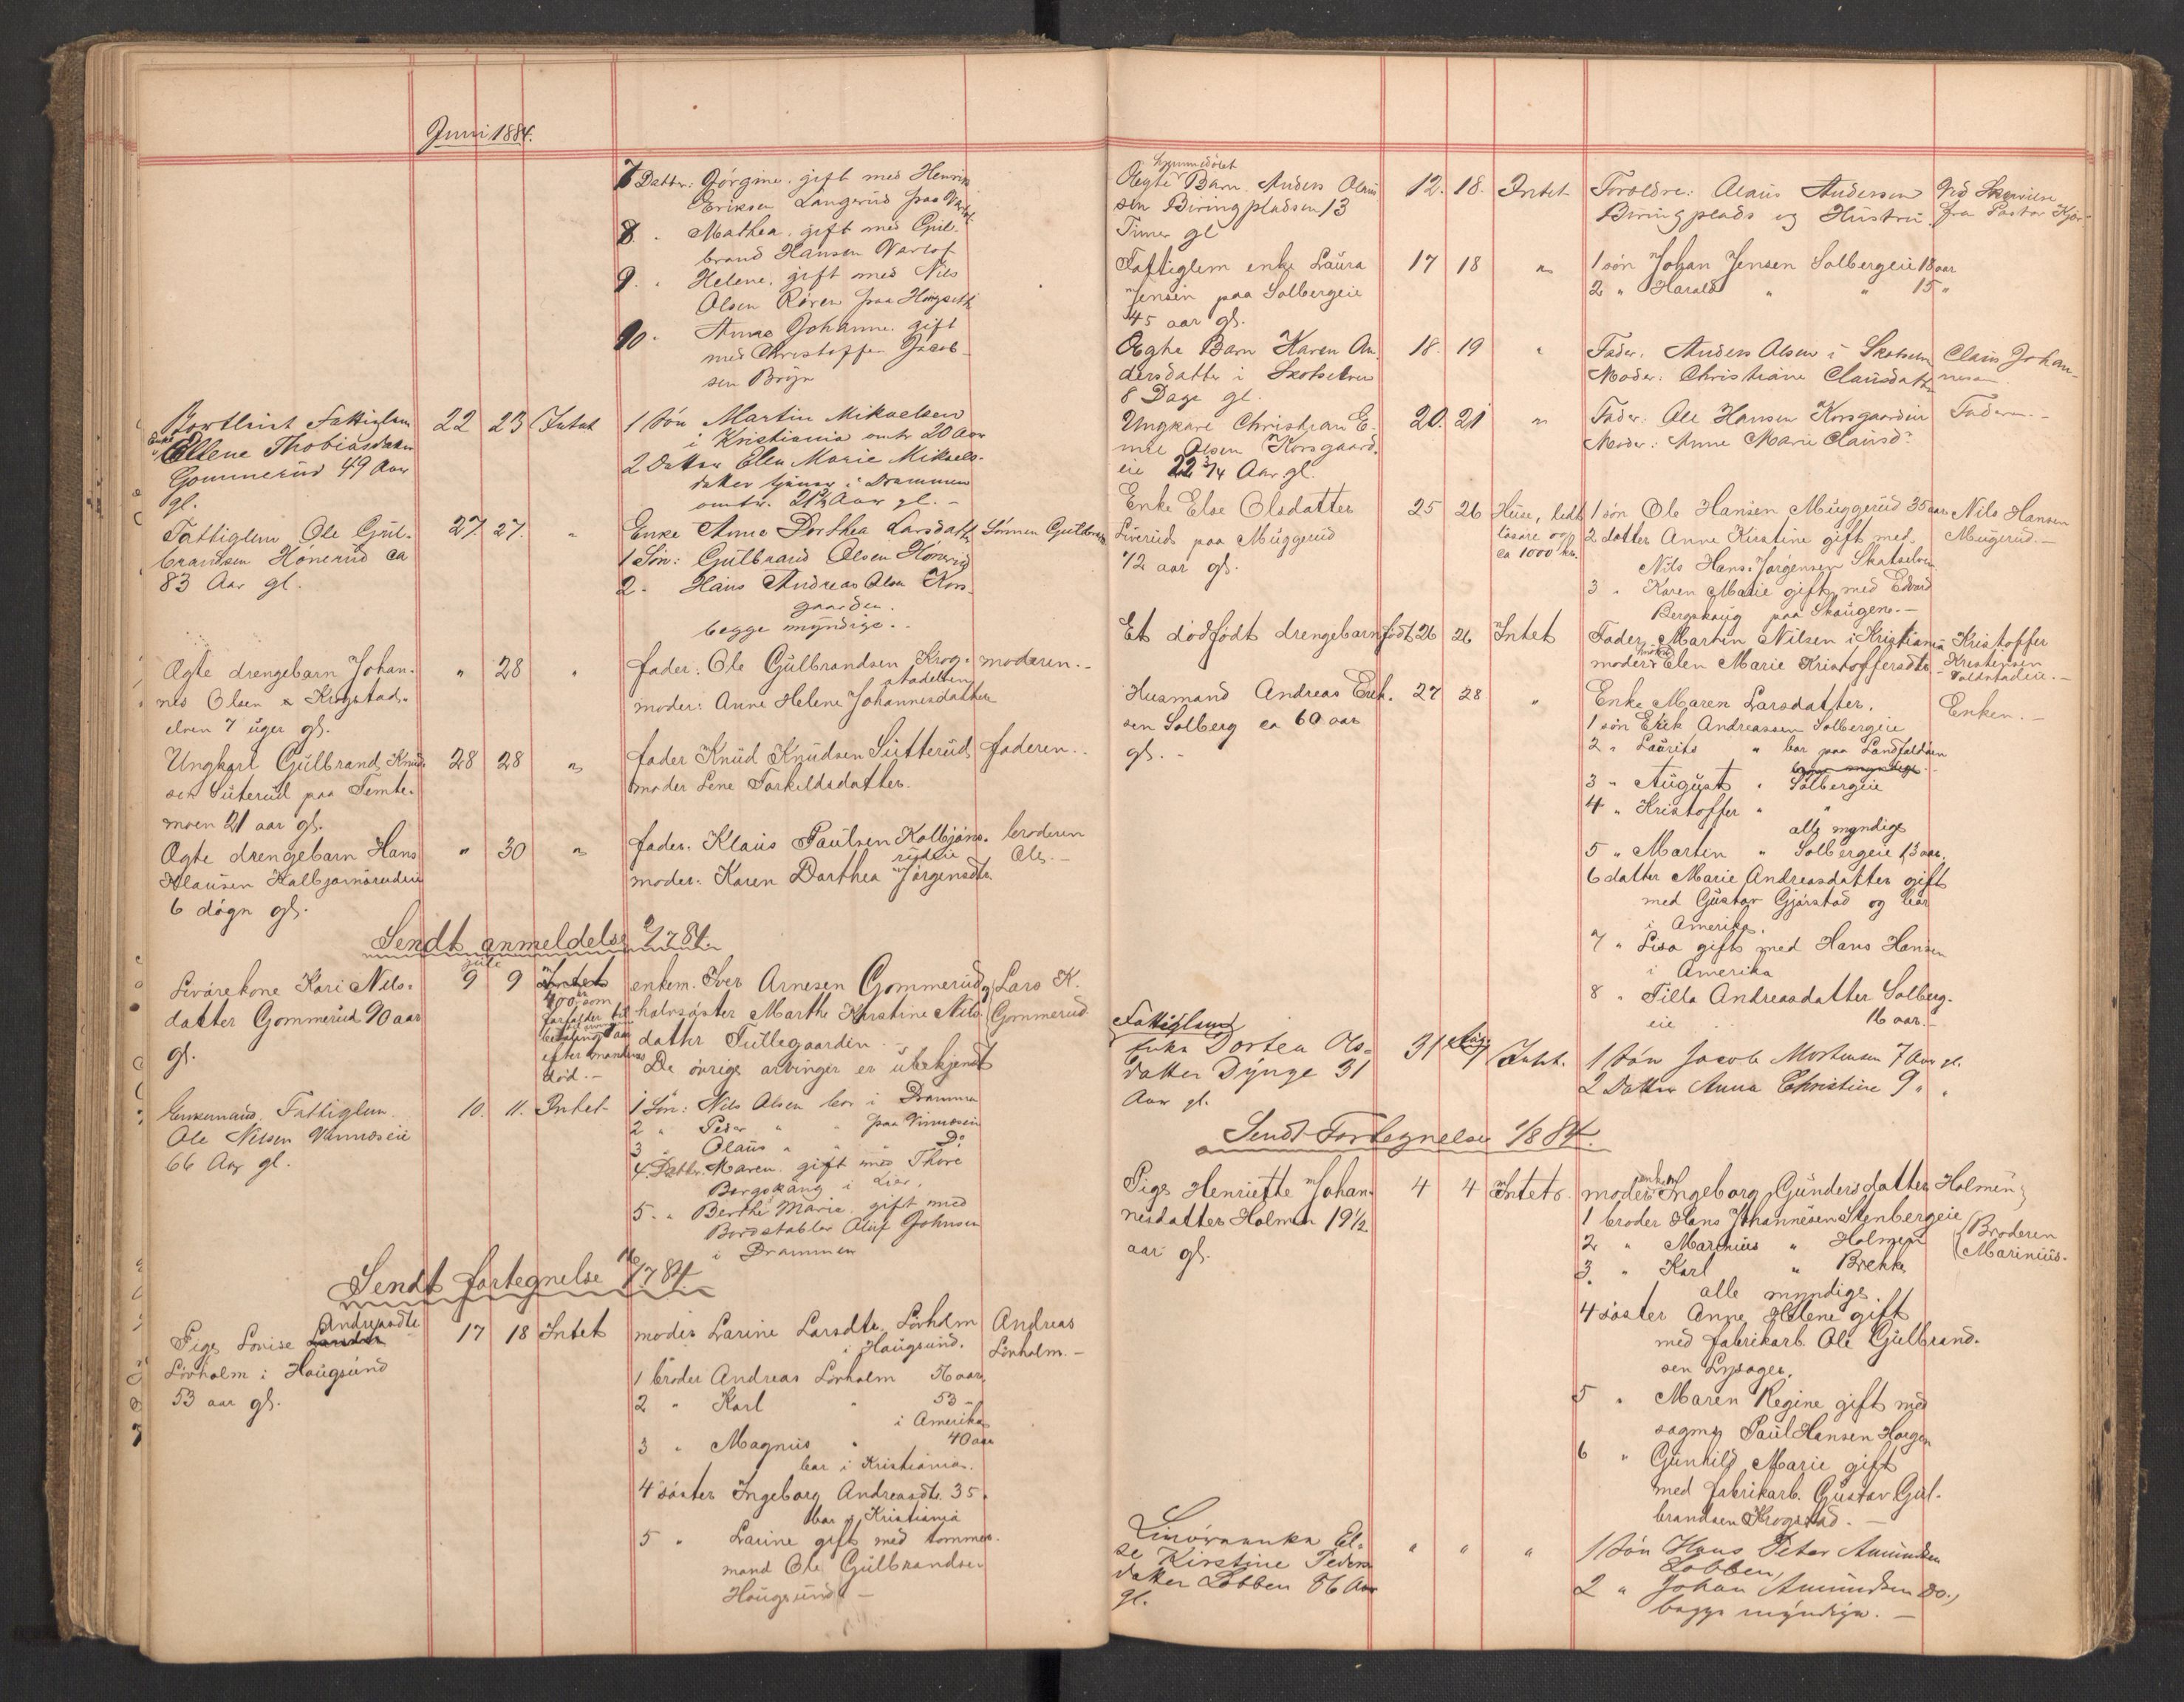 Juni 1884.
7 Datter: Jörgine. gift med Henrik
Eriksen Langerud paa
8 " Mathea. gift med Gul-
brand Hansen Varlo
9. " Helene, gift med Nils
Olsen Rören paa
10. Anna Johanne. gift
med Christoffer Jacob-
sen Bryn
Fattiglem 22 23 Intet 1 Sön Martin Mikaelsen
Enke Ellene Thobiasdatter i Kristiania omtr 20 Aar
Gommerud 49 Aar 2 Datter Elen Marie Mikaels-
gl. datter tjener i Drammen
omtr. 21½ Aar gl. -
Fattiglem Ole Gul- 27. 27. " Enke Anne Dorthea Larsdatter Sönnen Gulbrand
brandsen Hönerud ca 1 Sön: Gulbrand Olsen Hönerud
83 Aar gl. 2. Hans Andreas Olsen Kors-
gaarden.
begge myndige. -
Ægte drengebarn Johan- " 28 " fader: Ole Gulbrandsen Krog- moderen. -
nes Olsen Krogstad- stadelven
elven 7 uger gl. moder: Anne Helene Johannesdatter
Ungkarl Gulbrand Knud- 28 28 " fader Knud Knudsen Sutterud faderen. -
sen Suterud paa Temte- moder Lene Torkildsdatter.
moen 21 aar gl.
Ægte drengebarn Hans " 30 " fader. Klaus Paulsen Kolbjörns- broderen
Klausen Kolbjörnsrudeie rudeie Ole. -
6 dögn gl. moder. Karen Dorthea Jörgensdtr.
Sendt anmeldelse 2/7 84.
juli
Livörekone Kari Nils- 9 9 Intet enkem. Iver Arnesen Gommerud og Lars K.
datter Gommerud 90 aar 400 kr som halvsöster Marthe Kirstine Nils- Gommerud
gl. forfalder til datter Tullegaarden. -
betaling 1 aar De övrige arvinger er ubekjendt
efter mandens
död. -
Enkemand. Fattiglem 10. 11. Intet 1 Sön: Nils Olsen bor i Drammen
Ole Nilsen 2 " Peder " " paa
66 Aar gl. 3 " Olaus " " Do
4. Datter. Maren. gift med Thore
Bergskaug i Lier.
5. " Berthe Marie. gift med
Bordstabler Oluf Johnsen
i Drammen
Sendt fortegnelse 16/7 84.
Andreasdtr
Pige Lovise Larsdtr 17 18 Intet moder Larine Larsdtr. Lövholm Andreas
Lövholm i Haugsund i Haugsund. Lövholm. -
53 aar gl. 1 broder Andreas Lövholm 56 aar,
2 " Karl " 53 -
i Amerika
3 " Magnus " 40 aar
bor i Kristiania.
4 söster Ingeborg Andreasdtr. 35.
bor i Kristiania
5 " Larine gift med tömmer-
mand Ole Gulbrandsen
Haugsund -
hjemmedöbt
Ægte Barn Anders Olaus- 12. 18. Intet Forældre: Olaus Andersen Ved Skrivelse
sen Biringpladsen 13 Biringplads og Hustru. fra Pastor
Timer gl
Fattiglem enke Laura 17 18 " 1 sön Johan Jensen Solbergeie 18 aar
Jensen paa Solbergeie 2 " Harald " " 15 "
45 aar gl.
Ægte Barn Karen An- 18. 19 " Fader. Anders Olsen i Skotselven Claus Johan-
dersdatter i Skotselven Moder: Christiane Clausdatter nesen
8 Dage gl.
Ungkarl Christian E- 20. 21 " Fader: Ole Hansen Korsgaardeie Faderen. -
mil Olsen Korsgaard- Moder: Anne Marie Clausd.
eie 22 3/4 Aar gl.
Enke Else Olsdatter 25 26 Huse, lidt 1 sön Ole Hansen Muggerud 35 aar Nils Hansen
Liverud paa Muggerud lösöre og 2 datter Anne Kirstine gift med Mugerud. -
72 aar gl. ca 1000 kr. Nils Hans. Jörgensen Skotselven
3 " Karen Marie gift med Edvard
Bergskaug paa Skaugen. -
Et dödfödt drengebarn födt 26 26 Intet Fader Martin Nilsen i Kristiania Kristoffer
moder Elen Marie Kristoffersdtr. Kristensen
Husmand Andreas Erik- 27 28 " Enke Maren Larsdatter. Enken. -
sen Solberg ca 60 aar 1 sön Erik Andreassen Solbergeie
gl. - 2 " Laurits " bor paa Landfaldöen
begge myndige.
3 " August " Solbergeie
4 " Kristoffer " "
alle myndige
5 " Martin " Solbergeie 13 aar,
6 datter Marie Andreasdatter gift
med Gustav Gjörstad og bor
i Amerika.
7 " Lisa gift med Hans Hansen
i Amerika
8 " Tilla Andreasdatter Solberg-
eie 16 aar. -
Fattiglem
Enke Dortea Ols- 31 Intet. 1 Sön Jacob Mortensen 7 Aar gl.
datter Dynge 31 2 Datter Anna Christine 9 " "
Aar gl.
Sendt Fortegnelse 1/8 84.
Pige Henriette Johan- 4 4 Intet. moder enke Ingeborg Gundersdatter Holmen,
nesdatter Holmen 19½ 1 broder Hans Johannesen Stenbergeie
aar gl. 2 " Marinius " Holmen Broderen
3. " Karl " Brekke Marinius.
alle myndige.
4 söster Anne Helene gift
med fabrikarb. Ole Gulbrand-
sen Lysager.
5 " Maren Regine gift med
sagm. Paul Hansen Horgen
6 " Gunhild Marie gift
med fabrikarb. Gustav Gul-
brandsen Krogstad. -
Livöreenke El- " " " 1 Sön Hans Peter Amundsen
se Kirstine Peders- Lobben,
datter Lobben 86 Aar 2 " Johan Amundsen do.,
gl. begge myndige. -